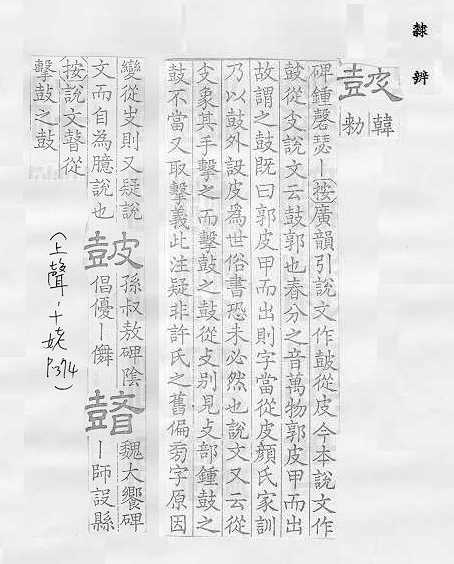 隸辨
皷
韓勑
碑鍾磬瑟丨按廣韻引說文作皷從皮今本說文作
鼓從支說文云鼓郭也春分之音萬物郭皮甲而出
故謂之鼓既曰郭皮甲而出則字當從皮顏氏家訓
乃以鼓外設皮為世俗書恐未必然也說文又云從
支象其手擊之而擊鼓之鼓從攴别見攴部鍾鼓之
鼓不當又取擊義此注疑非許氏之舊偏菊字原因
變從岁則又疑說
文而自為臆說也
皷
孫叔敖碑陰
倡優丨儛
魏大饗碑
丨師設縣
按說文瞽從
擊鼓之鼓
(上聲・十姥
P374)